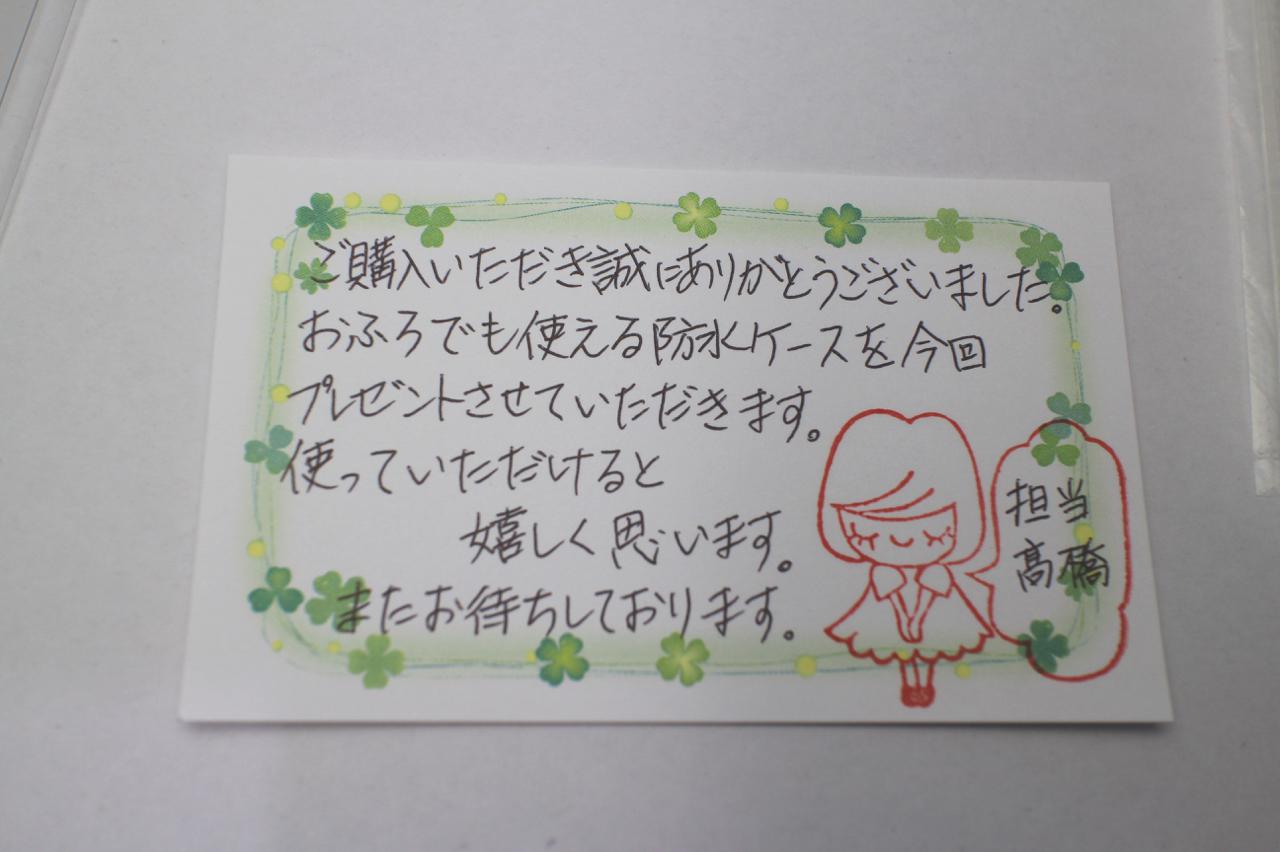 ご購入いただき誠にありがとうございました。
おふろでも使える防水ケースを今回
プレゼントさせていただきます。
使っていただけると
嬉しく思います。
またお待ちしております。
担当
髙橋